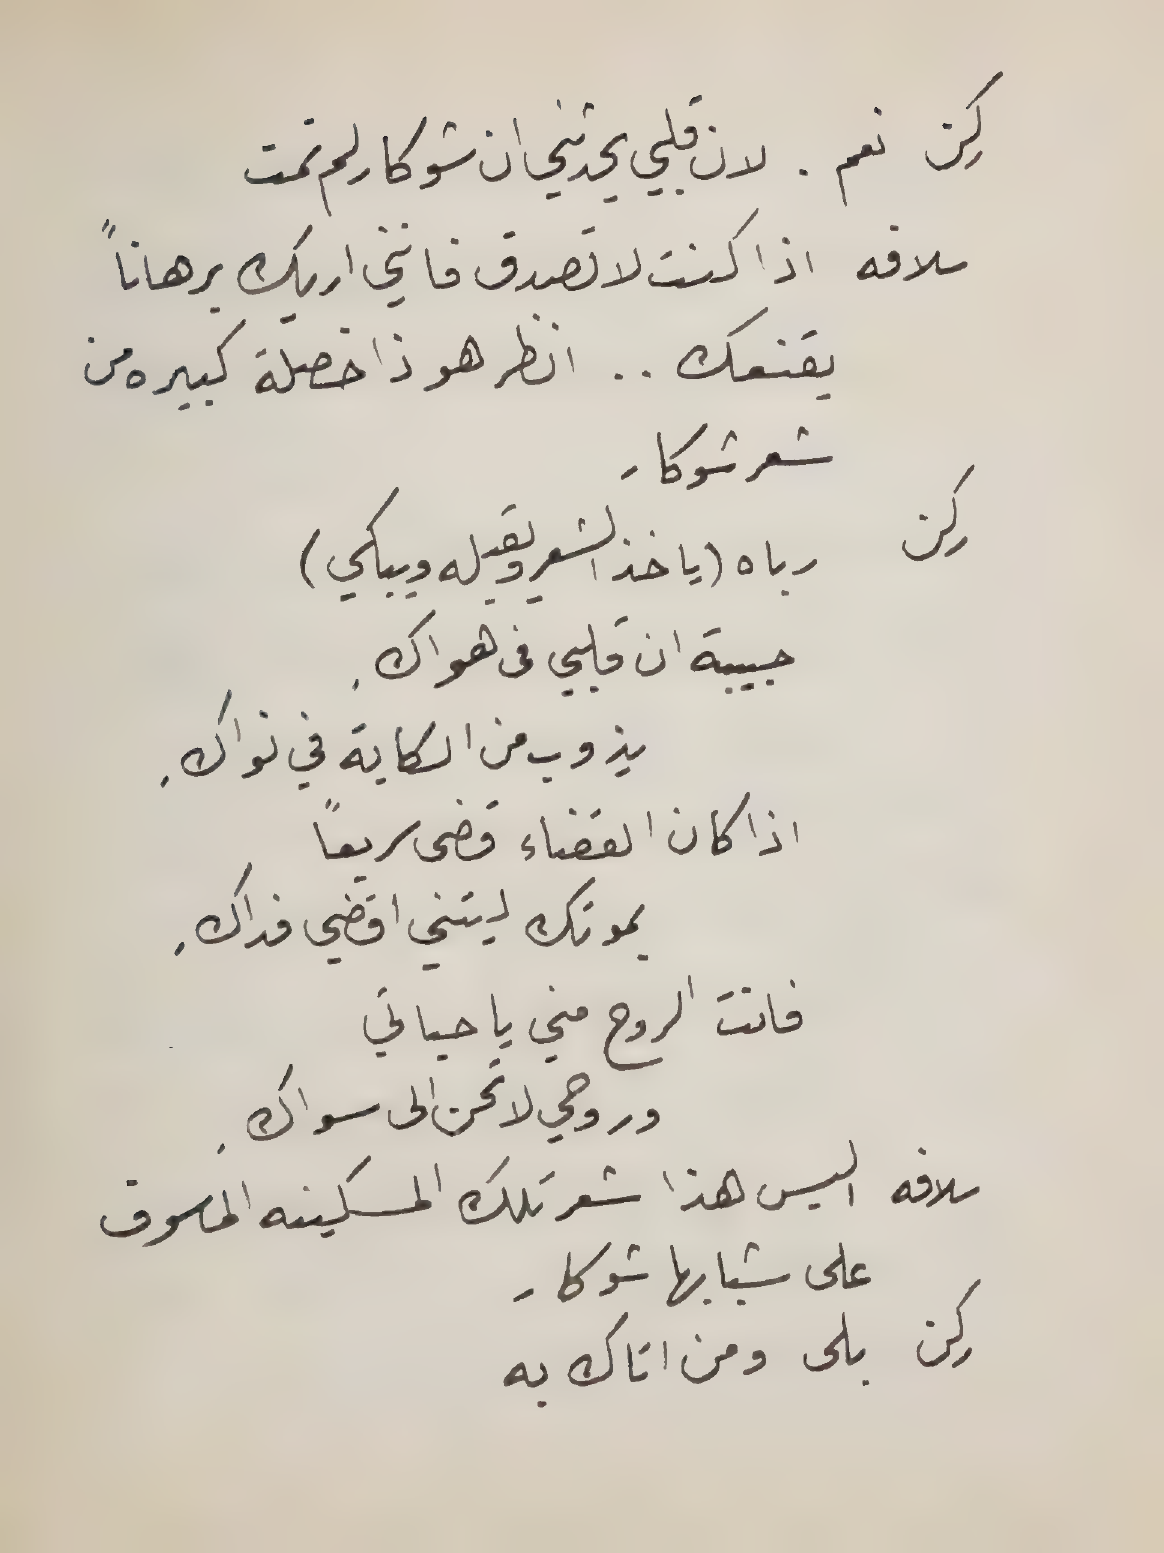 ركن نعم . لان قلبي يحدثني ان شوكار لم تمت
سلافه اذا كنت لا تصدق فانني اريك برهاناً
يقنعك .. انظر هو ذا خصلة كبيره من
شعر شوكار
ركن رباه (ياخذ الشعر ويقبله ويبكي)
حبيبة ان قلبي فى هواك
يذوب من الكابة في نواك
اذا كان القضاء قضى سريعاً
بموتك ليتني اقضي فداك
فانت الروح مني يا حياتي
وروحي لا تحن الى سواك
سلافه اليس هذا شعر تلك المسكينه الماسوف
على شبابها شوكار
ركن بلى ومن اتاك به